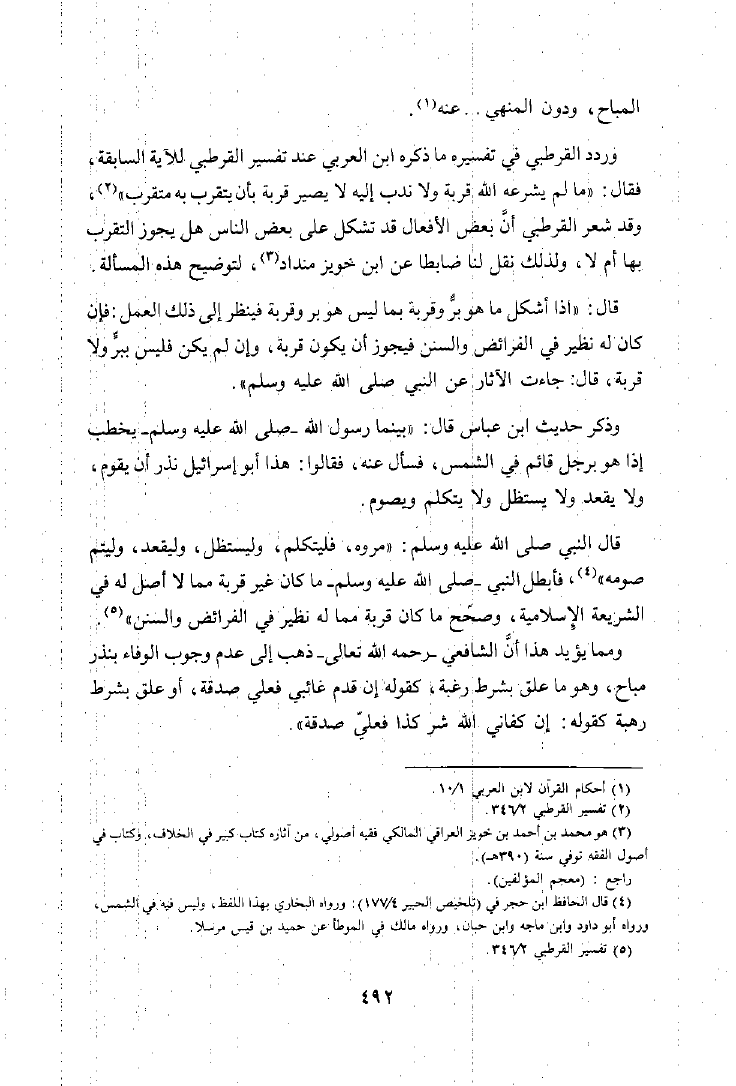 المباح، ودون المنهي . . عنه(١).
وردد القرطبي في تفسيره ما ذكره ابن العربي عند تفسير القرطبي للآية السابقة،
فقال: «ما لم يشرعه الله قربة ولا ندب إليه لا يصير قربة بأن يتقرب به متقرب»(٢)،
وقد شعر القرطبي أنَّ بعض الأفعال قد تشكل على بعض الناس هل يجوز التقرب
بها أم لا، ولذلك نقل لنا ضابطا عن ابن خويز منداد(٣)، لتوضيح هذه المسألة.
قال: «اذا أشكل ما هو برٌّ وقربة بما ليس هو بر وقربة فينظر إلى ذلك العمل: فإن
كان له نظير في الفرائض والسنن فيجوز أن يكون قربة، وإن لم يكن فليس ببرٍّ ولا
قربة، قال: جاءت الآثار عن النبي صلى الله عليه وسلم».
وذكر حديث ابن عباس قال: «بينما رسول الله ـصلى الله عليه وسلمـ يخطب
إذا هو برجل قائم في الشمس، فسأل عنه، فقالوا: هذا أبو إسرائيل نذر أن يقوم،
ولا يقعد ولا يستظل ولا يتكلم ويصوم.
قال النبي صلى الله عليه وسلم: «مروه، فليتكلم، وليستظل، وليقعد، وليتم
صومه»(٤)، فأبطل النبي ـصلى الله عليه وسلمـ ما كان غير قربة مما لا أصل له في
الشريعة الإسلامية، وصحّح ما كان قربة مما له نظير في الفرائض والسنن»(٥).
ومما يؤيد هذا أنَّ الشافعي ـرحمه الله تعالىـ ذهب إلى عدم وجوب الوفاء بنذر
مباح، وهو ما علق بشرط رغبة، كقوله إن قدم غائبي فعلي صدقة، أو علق بشرط
رهبة كقوله: إن كفاني الله شر كذا فعليّ صدقة».
(١) أحكام القرآن لابن العربي ١٠/١.
(٢) تفسير القرطبي ٣٤٦/٢.
(٣) هو محمد بن أحمد بن خويز العراقي المالكي فقيه أصولي، من آثاره كتاب كبير في الخلاف، وكتاب في
أصول الفقه توفي سنة (٣٩٠هـ).
راجع : (معجم المؤلفين).
(٤) قال الحافظ ابن حجر في (تلخيص الحبير ١٧٧/٤): ورواه البخاري بهذا اللفظ، وليس فيه في الشمس،
ورواه أبو داود وابن ماجه وابن حبان، ورواه مالك في الموطأ عن حميد بن قيس مرسلا.
(٥) تفسير القرطبي ٣٤٦/٢.
٤٩٢